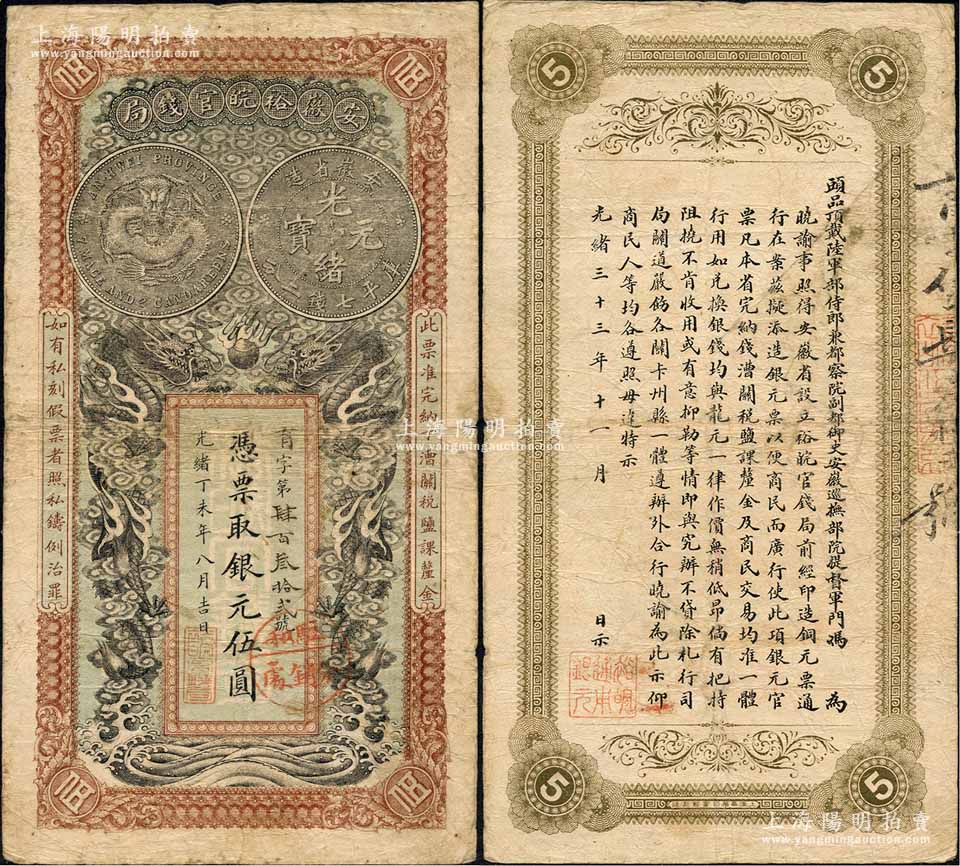 上海陽明拍賣
www.yangmingauction.com
伍
伍
安徽裕皖官錢局
AN-HUI PROVINCE
安徽省造
光緒元寶
此票准完納錢漕關税鹽課釐金
如有私刻假票者照私鑄例治罪
字第肆百叁拾貳號
憑票取銀元伍圓
光緒丁未年八月吉日
伍
伍
上海陽明拍賣
www.yangmingauction.com
5
5
頭品頂戴陸軍部侍郎兼都察院副都御史安徽巡撫部院提督軍門馮 為
曉諭事照得安徽省設立裕皖官錢局前經印造銅元票通
行在案茲擬添造銀元票以便商民而廣行使此項銀元官
票凡本省完納錢漕關税鹽課釐金及商民交易均准一體
行用如兑換銀錢均與龍元一律作價無稍低昂倘有把持
阻撓不肯收用或有意抑勒等情即與究辦不貸除札行司
局關道嚴飭各關卡州縣一體遵辦外合行曉諭為此示仰
商民人等均各遵照毋違特示
光緒三十三年十一月 日示
5
5
上海陽明拍賣
www.yangmingauction.com